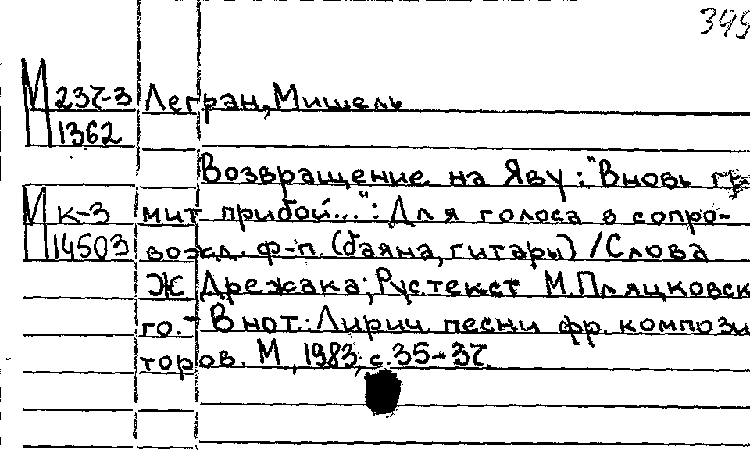 399
М 237-3 Легран, Мишель
М 1362
Возвращение на Яву: "Вновь гре-
М к-3 мит прибой...": Для голоса в сопро-
М 14503 вожд. ф-п. (баяна, гитары) / Слова
Ж Дрежака; Рус. текст М. Пляцковск
го. - В нот.: Лирич. песни фр. компози
торов. М., 1983, с. 35-37.